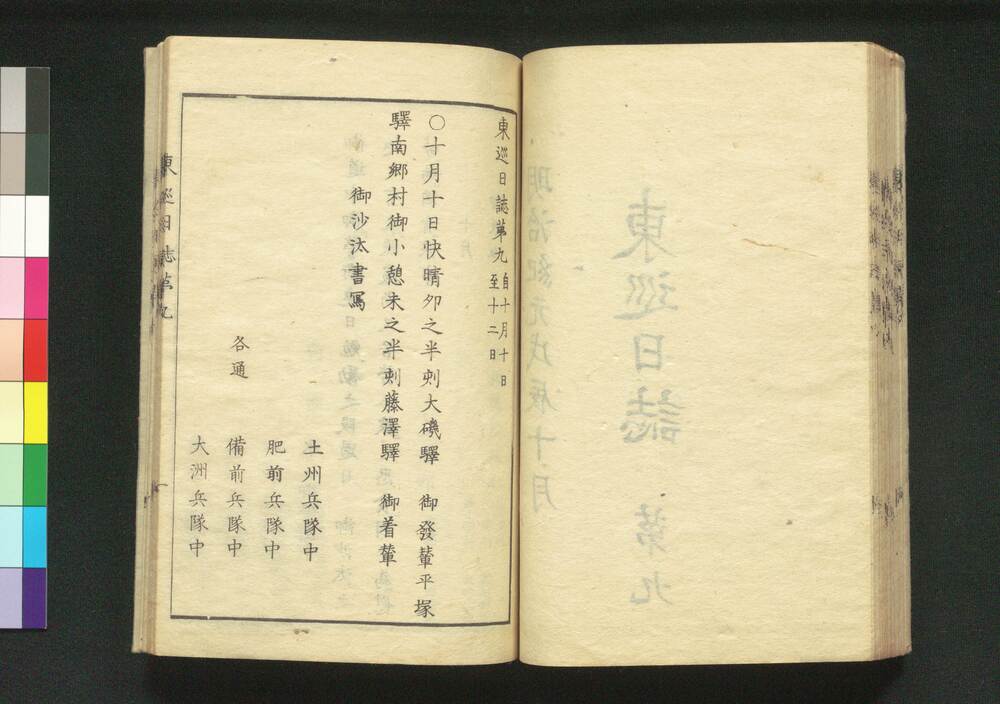 東巡日誌第九 自十月十日
至十二日
○十月十日快晴卯之半刻大磯驛 御發輦平塚
驛南郷村御小憩未之半刻藤澤驛 御着輦
御沙汰書寫
土州兵隊中
肥前兵隊中
各通
備前兵隊中
大洲兵隊中
東巡日誌第九
東巡日誌 第九
明治紀元戊辰十月